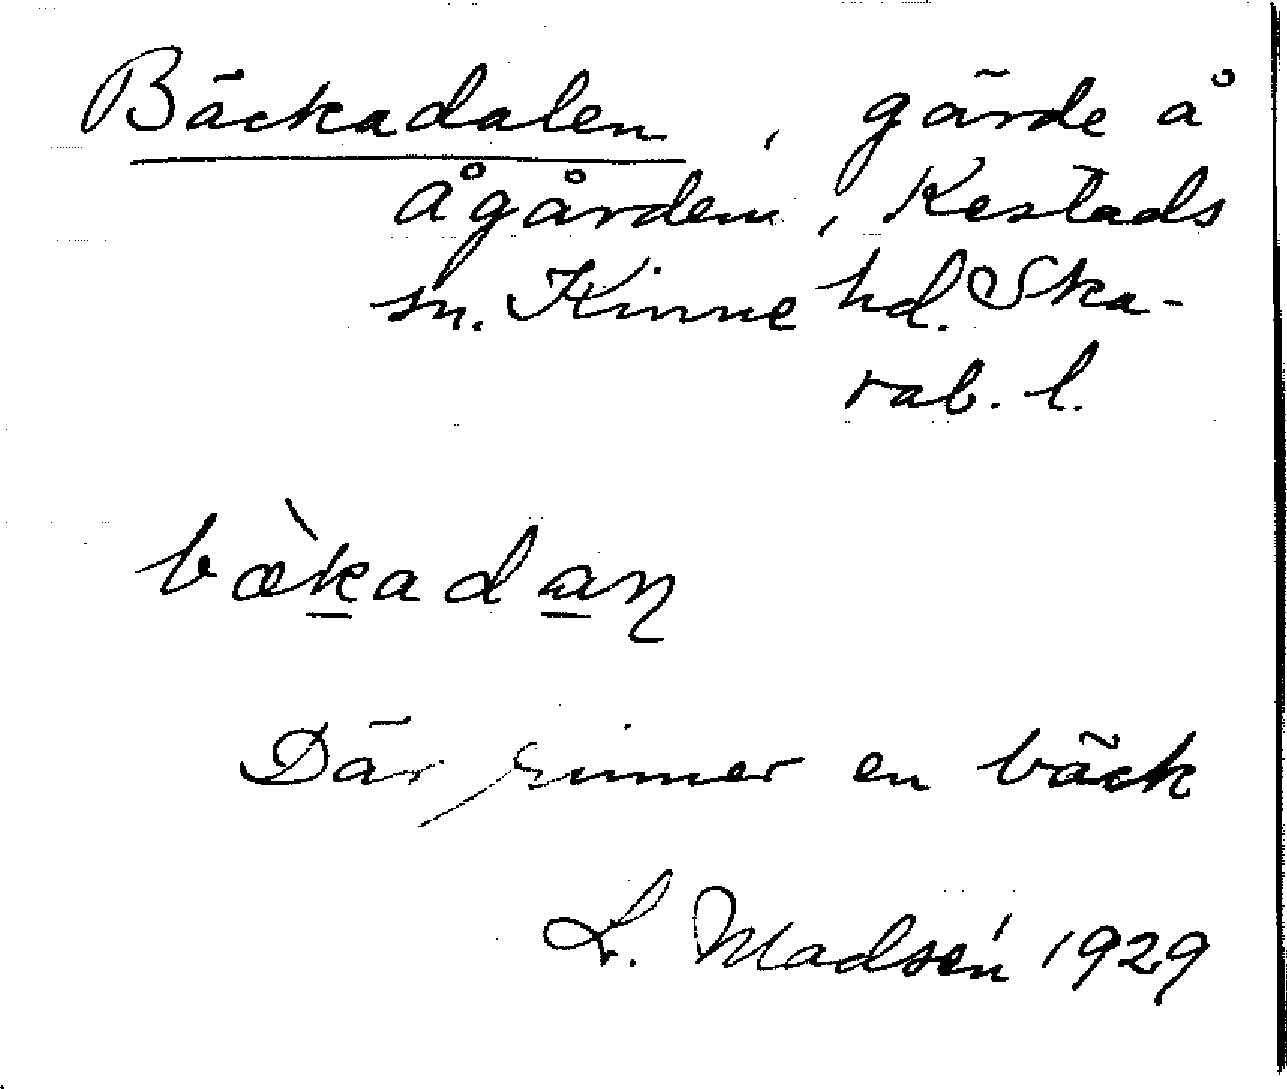 Bäckadalen, gärde å
Ågården, Kestads
sn. Kinne hd. Ska-
rab. l.
bæ̀kadaɳ
Där rinner en bäck
L. Madsén 1929